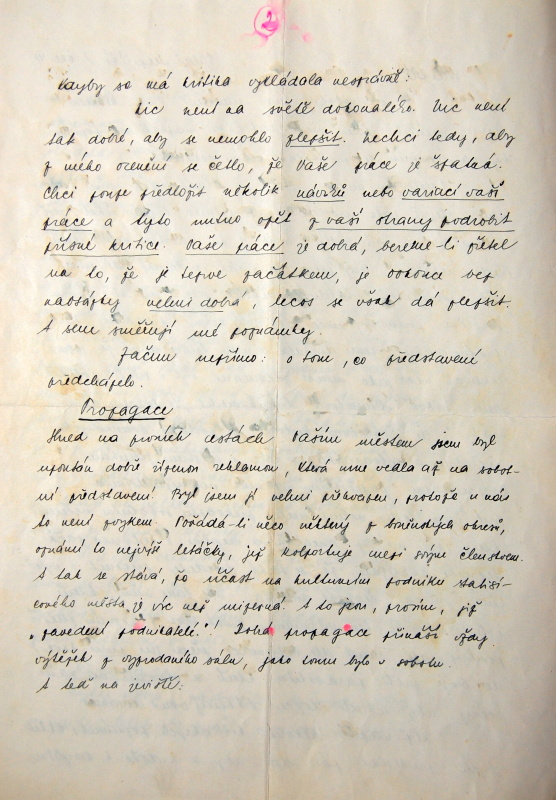 2
kdyby se má kritika vykládala nesprávně:
Nic není na světě dokonalého. Nic není
tak dobré, aby se nemohlo zlepšit. Nechci tedy, aby
z mého ocenění se četlo, že Vaše práce je špatná.
Chci pouze předložit několik návrhů nebo variací vaší
práce a tyto nutno opět z vaší strany podrobit
přísné kritice. Vaše práce je dobrá, bereme-li zřetel
na to, že je teprve začátkem, je dokonce bez
nadsázky velmi dobrá, lecos se však dá zlepšit.
A sem směřují mé poznámky.
Začnu nepřímo: o tom, co představení
předcházelo.
Propagace
Hned na prvních cestách Vaším městem jsem byl
upoután dobře řízenou reklamou, která mne vedla až na sobot-
ní představení. Byl jsem jí velmi překvapen, protože u nás
to není zvykem. Pořádá-li něco některý z brněnských okresů,
oznámí to nejvýš letáčky, jež kolportuje mezi svým členstvem.
A tak se stává, že účast na kulturním podniku statisí-
cového města je víc než mizerná. A to jsou, prosím, již
"zavedení podnikatelé"! Dobrá propagace přináší vždy
výtěžek z vyprodaného sálu, jako tomu bylo v sobotu.
A teď na jeviště: